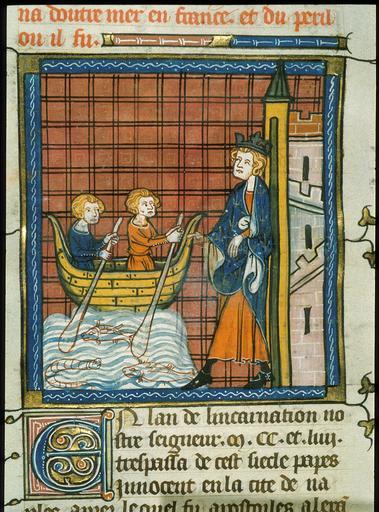 na doutre mer en france. et du peril
ou il fu.
En lan de lincarnation no
stre seigneur. m. CC. et. liiii.
trespassa de cest siecle papes
Innocent en la cite de na
ples. apres lequel fu apostoles alexā